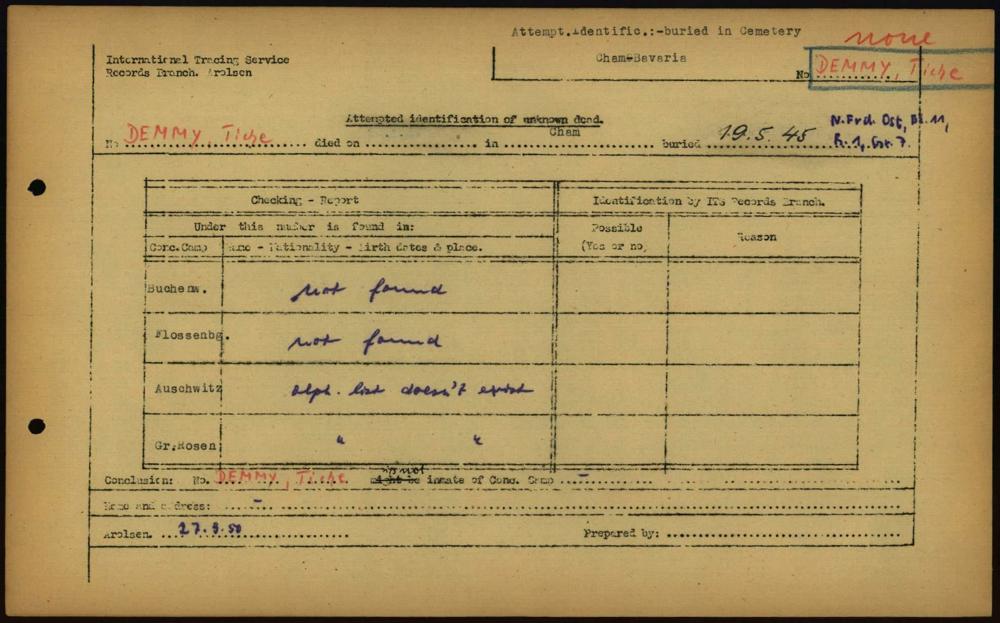 Attempt.identific.:-buried in Cemetery
none
International Tracing Service
Records Branch. Arolsen
Cham-Bavaria
No DEMMY, Tiche
Attempted identification of unknown dead.
No DEMMY, Tiche died on in Cham buried 19.5.45
N.Frdh. Ost, Bl.11,
R.1, Gr. 7.
Checking - Report
Identification by ITS Records Branch.
Under this number is found in:
Possible
(Yes or no)
Reason
Conc.Camp
Name - Nationality - Birth dates & place.
Buchenw. not found
Flossenbg. not found
Auschwitz alph. list doesn't exist
Gr.Rosen " "
Conclusion: No. DEMMY, Tiche might be is not inmate of Conc. Camp -
Name and address: -
Arolsen. 27.9.50 Prepared by: